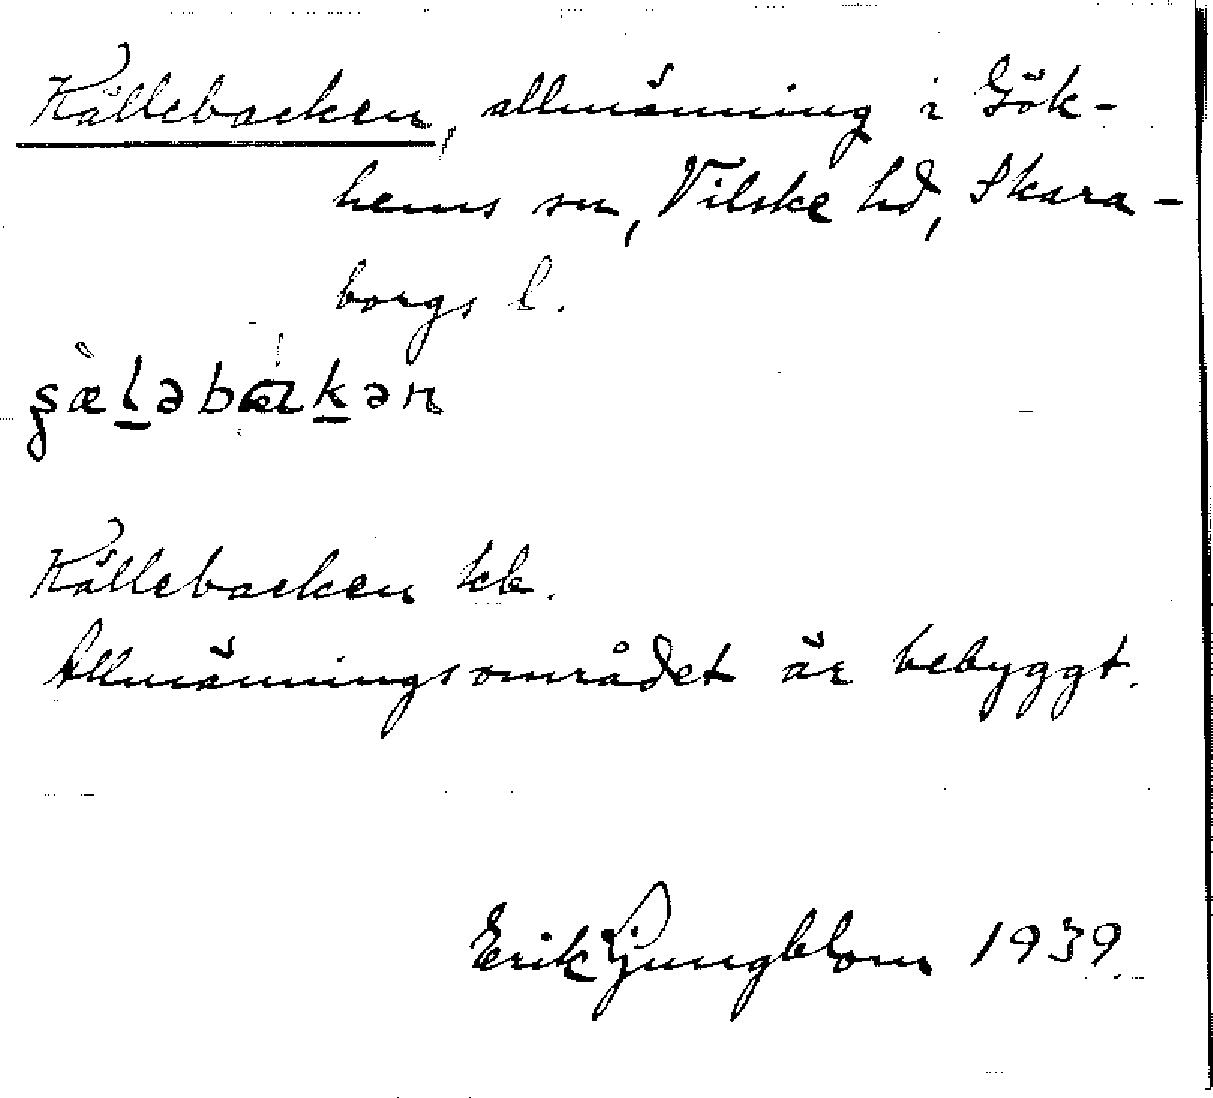 Källebacken, allmänning i Gök-
hems sn, Vilske hd, Skara-
borgs l.
Källebacken kb.
Allmänningsområdet är bebyggt.
Erik Ljungblom 1939